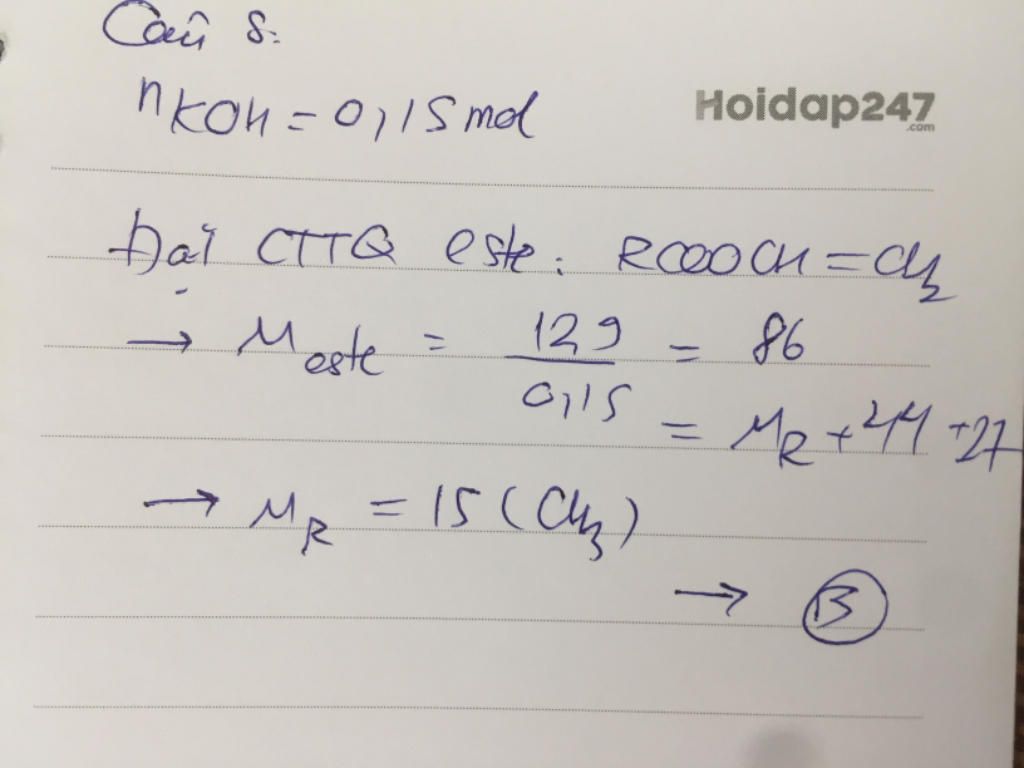 Câu 8:
nKOH = 0,15 mol
Hoidap247
.com
Đặt CTTQ este: RCOOCH=CH2
→ Meste = 129/0,15 = 86
= MR + 44 + 27
→ MR = 15 (CH3)
→ B